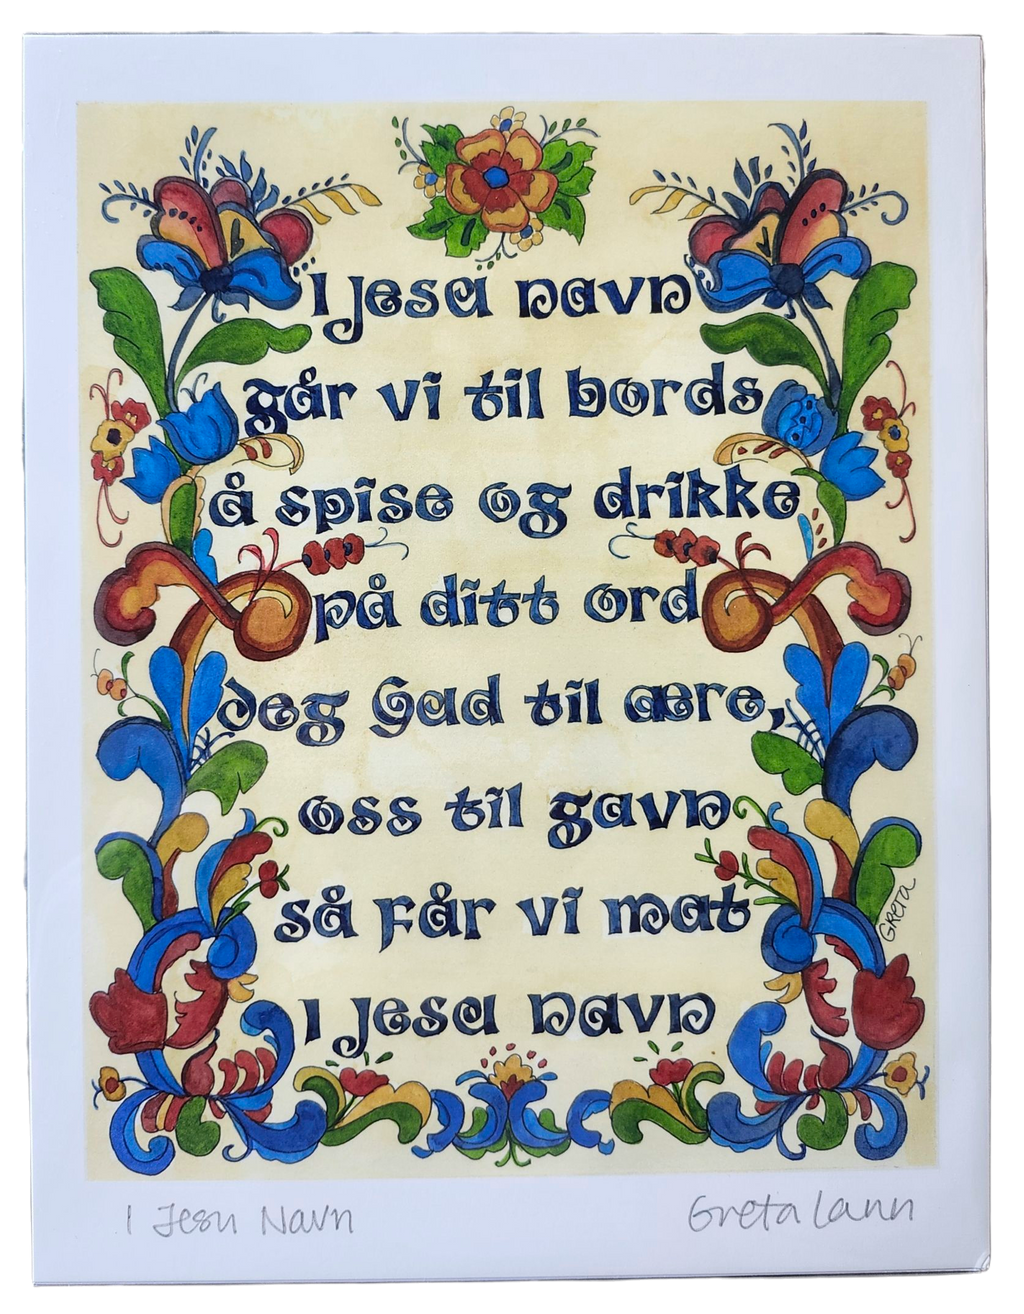 I Jesu navn
går vi til bords
å spise og drikke
på ditt ord
deg Gud til ære,
oss til gavn
så får vi mat
I Jesu navn
GRETA
I Jesu Navn
Greta Lann